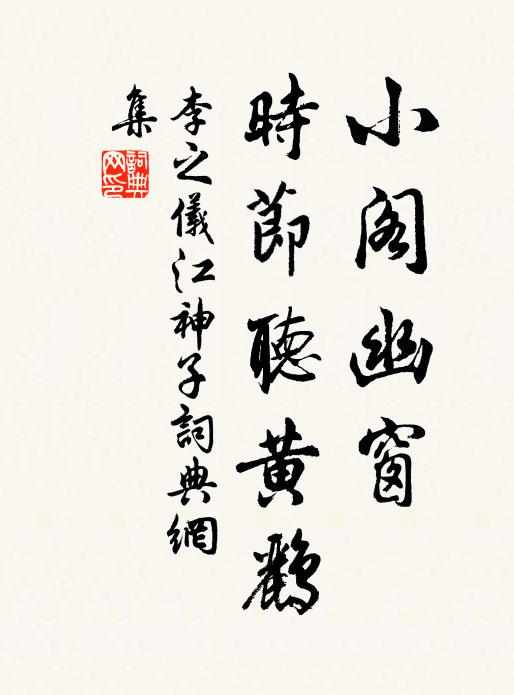 小閣幽窗
時節聽黃鸝
李之儀江神子詞典網
集
詞典
网印